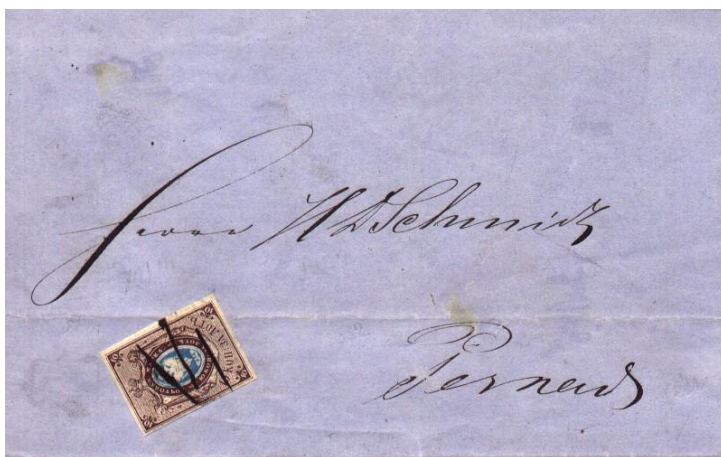 Herrn H D Schmidt
Pernau
КОП. ЗА ЛОТЪ